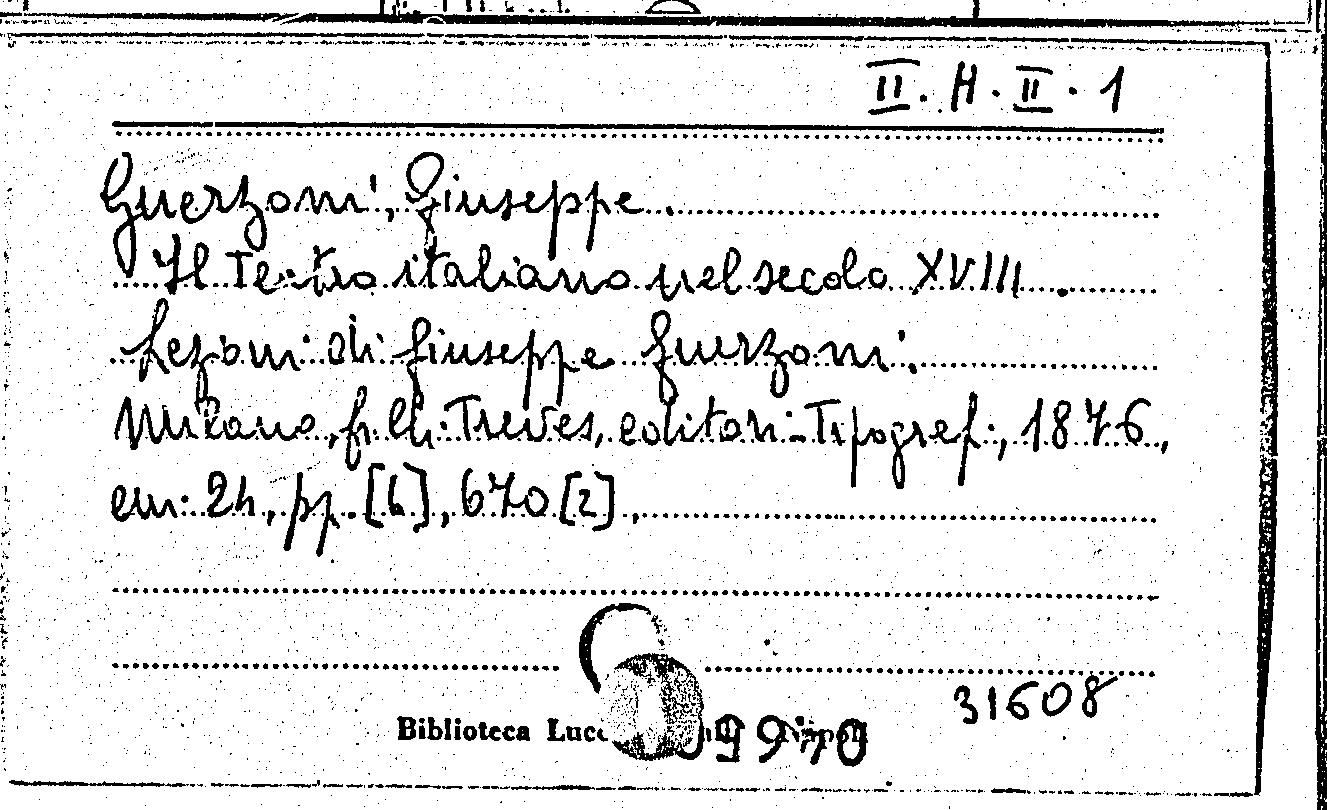 II. H. II. 1
Guerzoni, Giuseppe.
Il Teatro italiano nel secolo XVIII.
Lezioni di Giuseppe Guerzoni.
Milano, f.lli Treves, editori-Tipograf., 1876,
cm. 24, pp. [6], 670 [2],
31608
Biblioteca